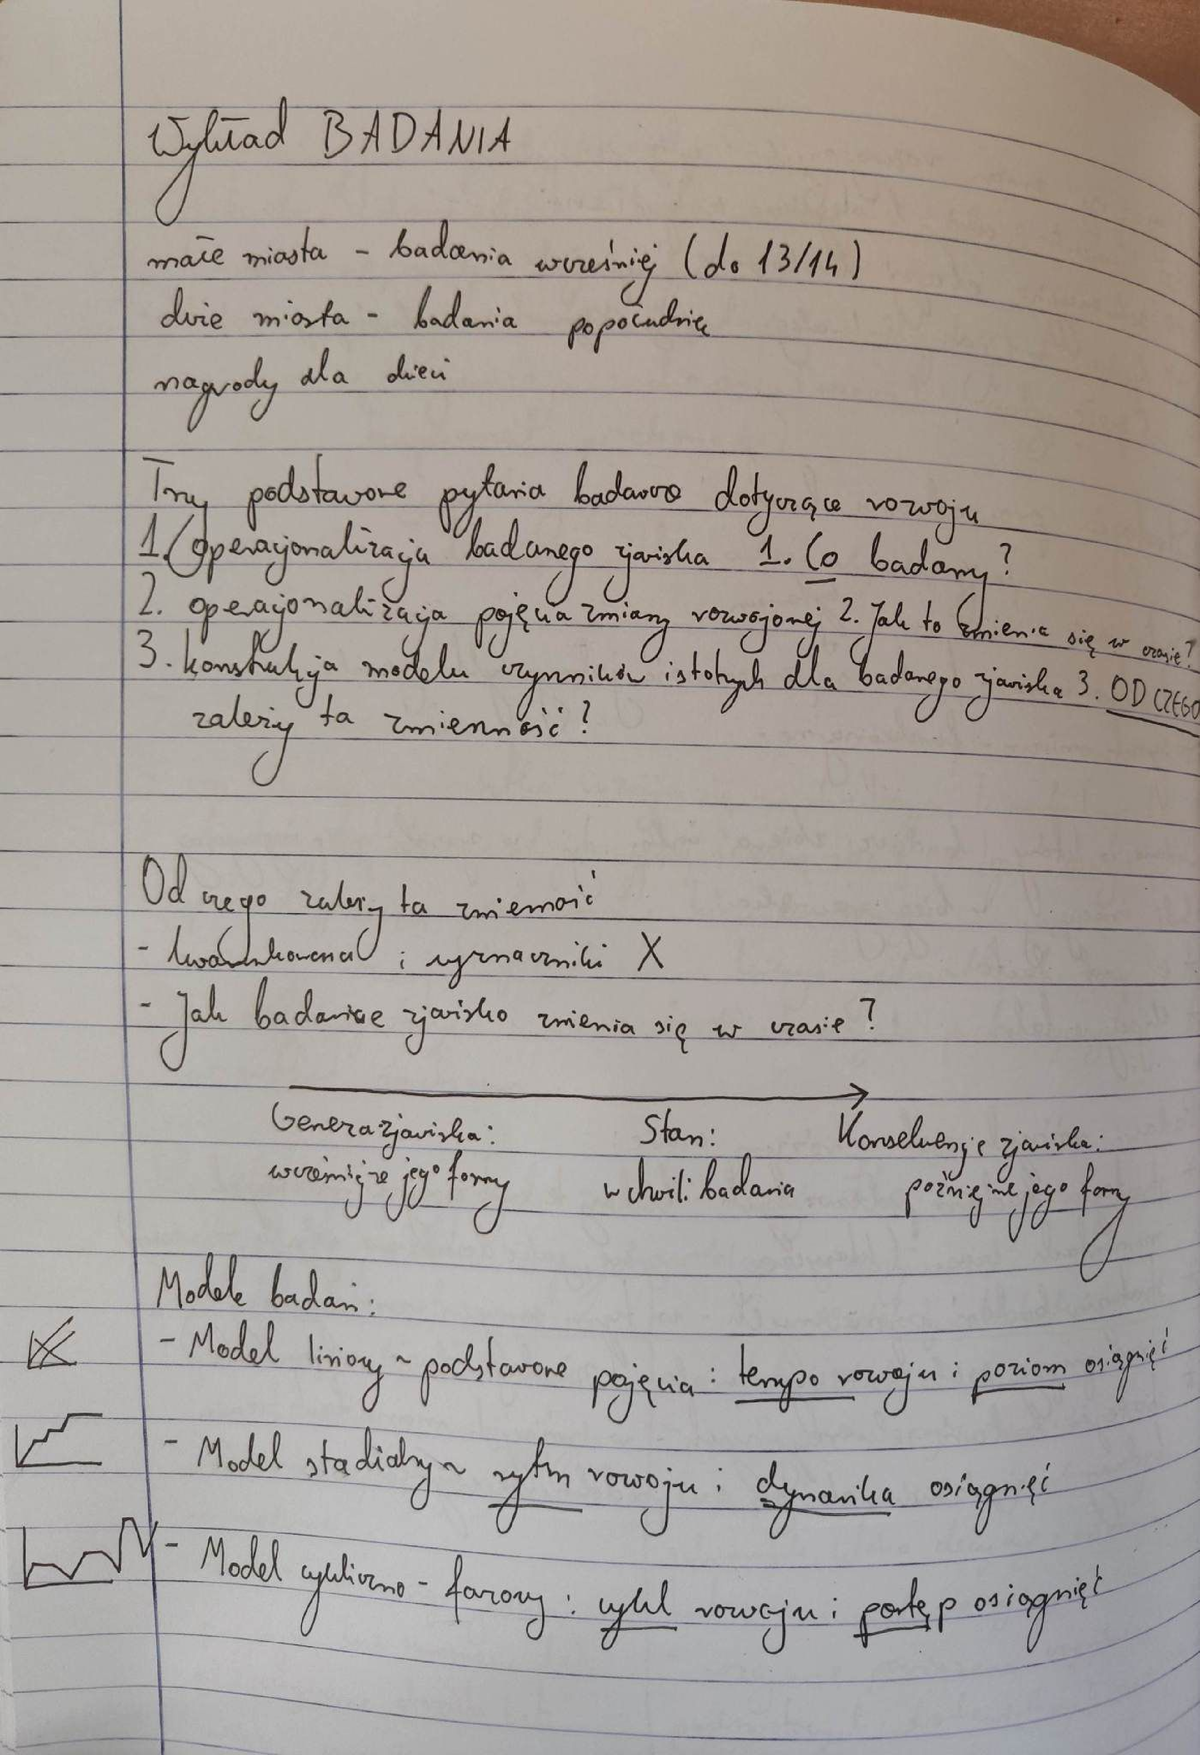 Wykład BADANIA
małe miasta - badania wcześniej (do 13/14)
duże miasta - badania popołudnie
nagrody dla dzieci
Trzy podstawowe pytania badawcze dotyczące rozwoju
1. operacjonalizacja badanego zjawiska 1. Co badamy?
2. operacjonalizacja pojęcia zmiany rozwojowej 2. Jak to zmienia się w czasie?
3. konstrukcja modelu czynników istotnych dla badanego zjawiska 3. OD CZEGO
zależy ta zmienność?
Od czego zależy ta zmienność
- i wyznaczniki X
- Jak badane zjawisko zmienia się w czasie?
Geneza zjawiska: Stan: Konsekwencje zjawiska:
wcześniejsze jego formy w chwili badania późniejsze jego formy
Modele badań:
- Model liniowy ~ podstawowe pojęcia: tempo rozwoju i poziom osiągnięć
- Model stadialny ~ rytm rozwoju i dynamika osiągnięć
- Model cykliczno - fazowy: cykl rozwoju i postęp osiągnięć